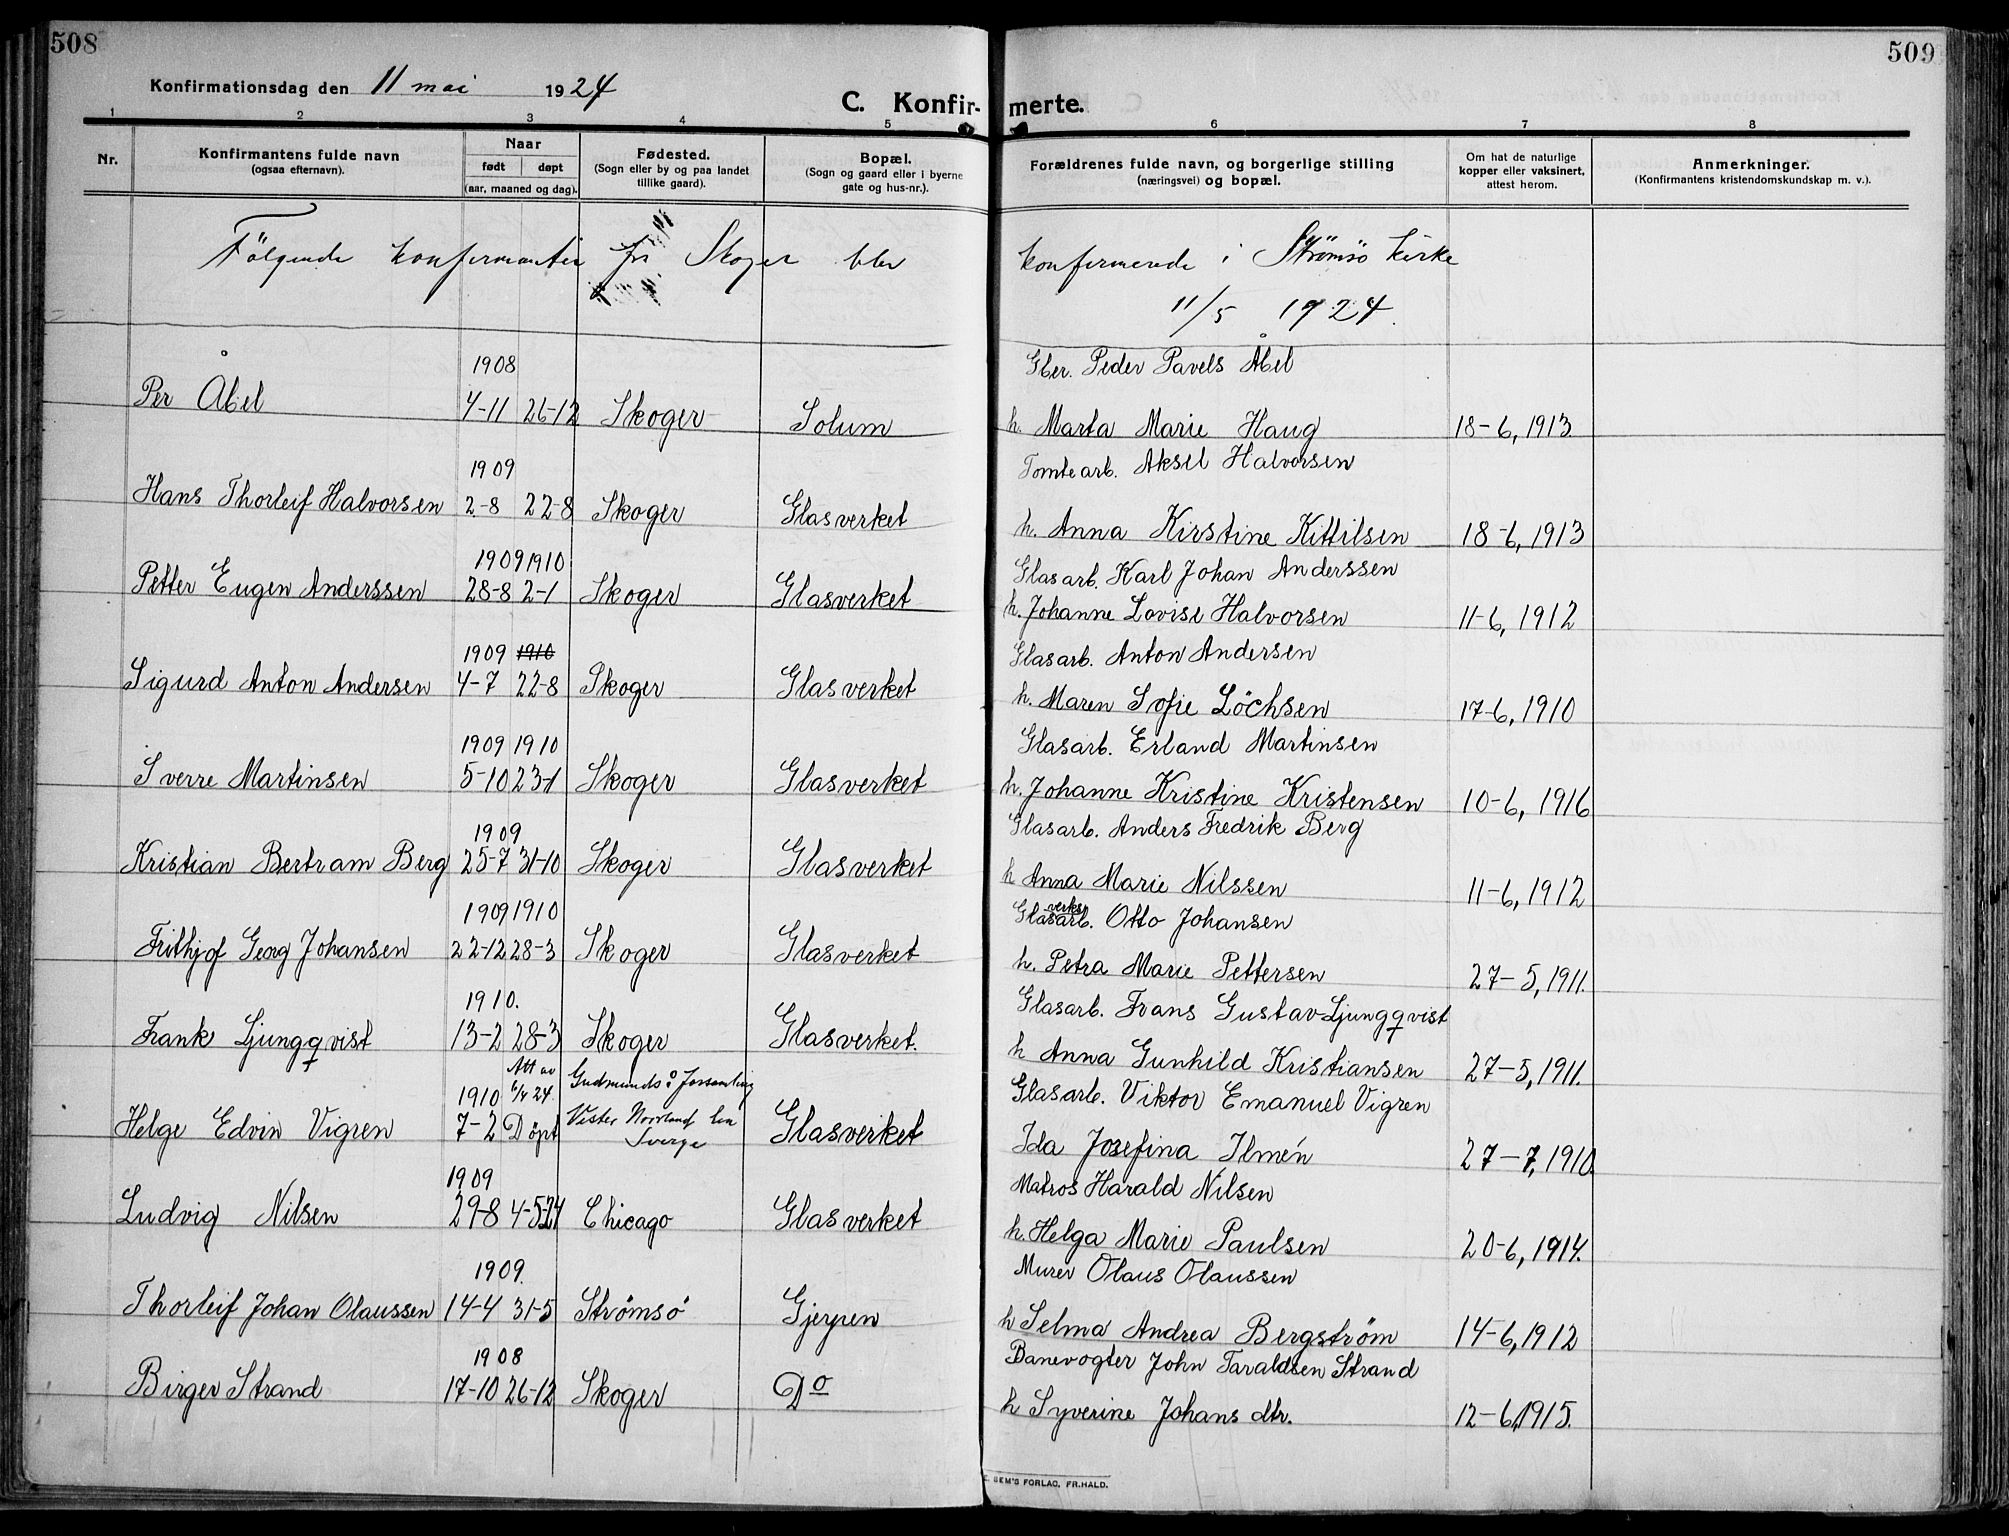 508
509
Konfirmationsdag den 11 mai 1924
C. Konfir- merte.
1 2 3 4 5 6 7 8
Nr.
Konfirmantens fulde navn
(ogsaa efternavn).
Naar
født døpt
(aar, maaned og dag).
Fødested.
(Sogn eller by og paa landet
tillike gaard).
Bopæl.
(Sogn og gaard eller i byerne
gate og hus-nr.).
Forældrenes fulde navn, og borgerlige stilling
(næringsvei) og bopæl.
Om hat de naturlige
kopper eller vaksinert,
attest herom.
Anmerkninger.
(Konfirmantens kristendomskundskap m. v.).
Følgende konfirmanter fra Skoger blev konfirmerede i Strømsø kirke
11/5 1924.
1908 Gbr. Peder Pavels Åbel
Per Åbel 4-11 26-12 Skoger Solum h. Marta Marie Haug 18-6, 1913
1909 Tomtearb. Aksel Halvorsen
Hans Thorleif Halvorsen 2-8 22-8 Skoger Glasverket h. Anna Kirstine Kittilsen 18-6, 1913
1909 1910 Glasarb. Karl Johan Anderssen
Petter Eugen Anderssen 28-8 2-1 Skoger Glasverket h. Johanne Lovise Halvorsen 11-6, 1912
1909 1910 Glasarb. Anton Andersen
Sigurd Anton Andersen 4-7 22-8 Skoger Glasverket h. Maren Sofie Löchsen 17-6, 1910
1909 1910 Glasarb. Erland Martinsen
Sverre Martinsen 5-10 23-1 Skoger Glasverket h. Johanne Kristine Kristensen 10-6, 1916
1909 Glasarb. Anders Fredrik Berg
Kristian Bertram Berg 25-7 31-10 Skoger Glasverket h Anna Marie Nilssen 11-6, 1912
1909 1910 verks Glasarb. Otto Johansen
Frithjof Georg Johansen 22-12 28-3 Skoger Glasverket h. Petra Marie Pettersen 27-5, 1911.
1910. Glasarb. Frans Gustav Ljungqvist
Frank Ljungqvist 13-2 28-3 Skoger Glasverket. h Anna Gunhild Kristiansen 27-5, 1911.
1910 Att av 24. Gudmundrå Forsamling Glasarb. Viktor Emanuel Vigren
Helge Edvin Vigren 7-2 Döpt Vester Norrland len Sverge Glasverket Ida Josefina Ilmén 27-7, 1910
1909 Matros Harald Nilsen
Ludvig Nilsen 29-8 4-5-24 Chicago Glasverket h. Helga Marie Paulsen 20-6, 1914.
1909. Murer Olaus Olaussen
Thorleif Johan Olaussen 14-4 31-5 Strømsö Gjerpen h Selma Andrea Bergstrøm 14-6, 1912
1908 Banevogter John Taraldsen Strand
Birger Strand 17-10 26-12 Skoger Do h Syverine Johans dtr. 12-6, 1915.
SEM'S FORLAG, FR.HALD.